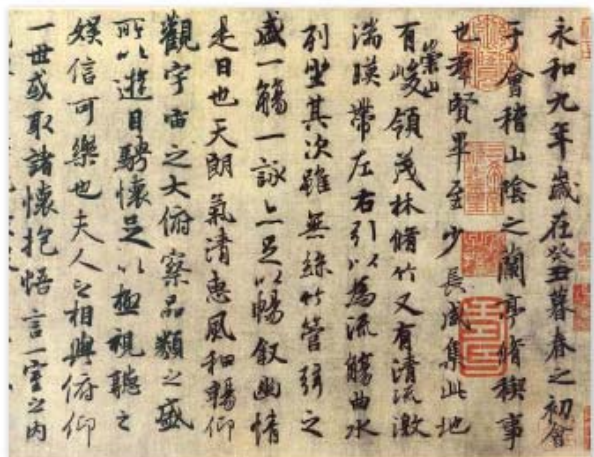 永和九年歲在癸丑暮春之初會
于會稽山陰之蘭亭脩禊事
也羣賢畢至少長咸集此地
有崇山峻領茂林脩竹又有清流激
湍暎帶左右引以為流觴曲水
列坐其次雖無絲竹管弦之
盛一觴一詠亦足以暢敘幽情
是日也天朗氣清惠風和暢仰
觀宇宙之大俯察品類之盛
所以遊目騁懷足以極視聽之
娛信可樂也夫人之相與俯仰
一世或取諸懷抱悟言一室之內